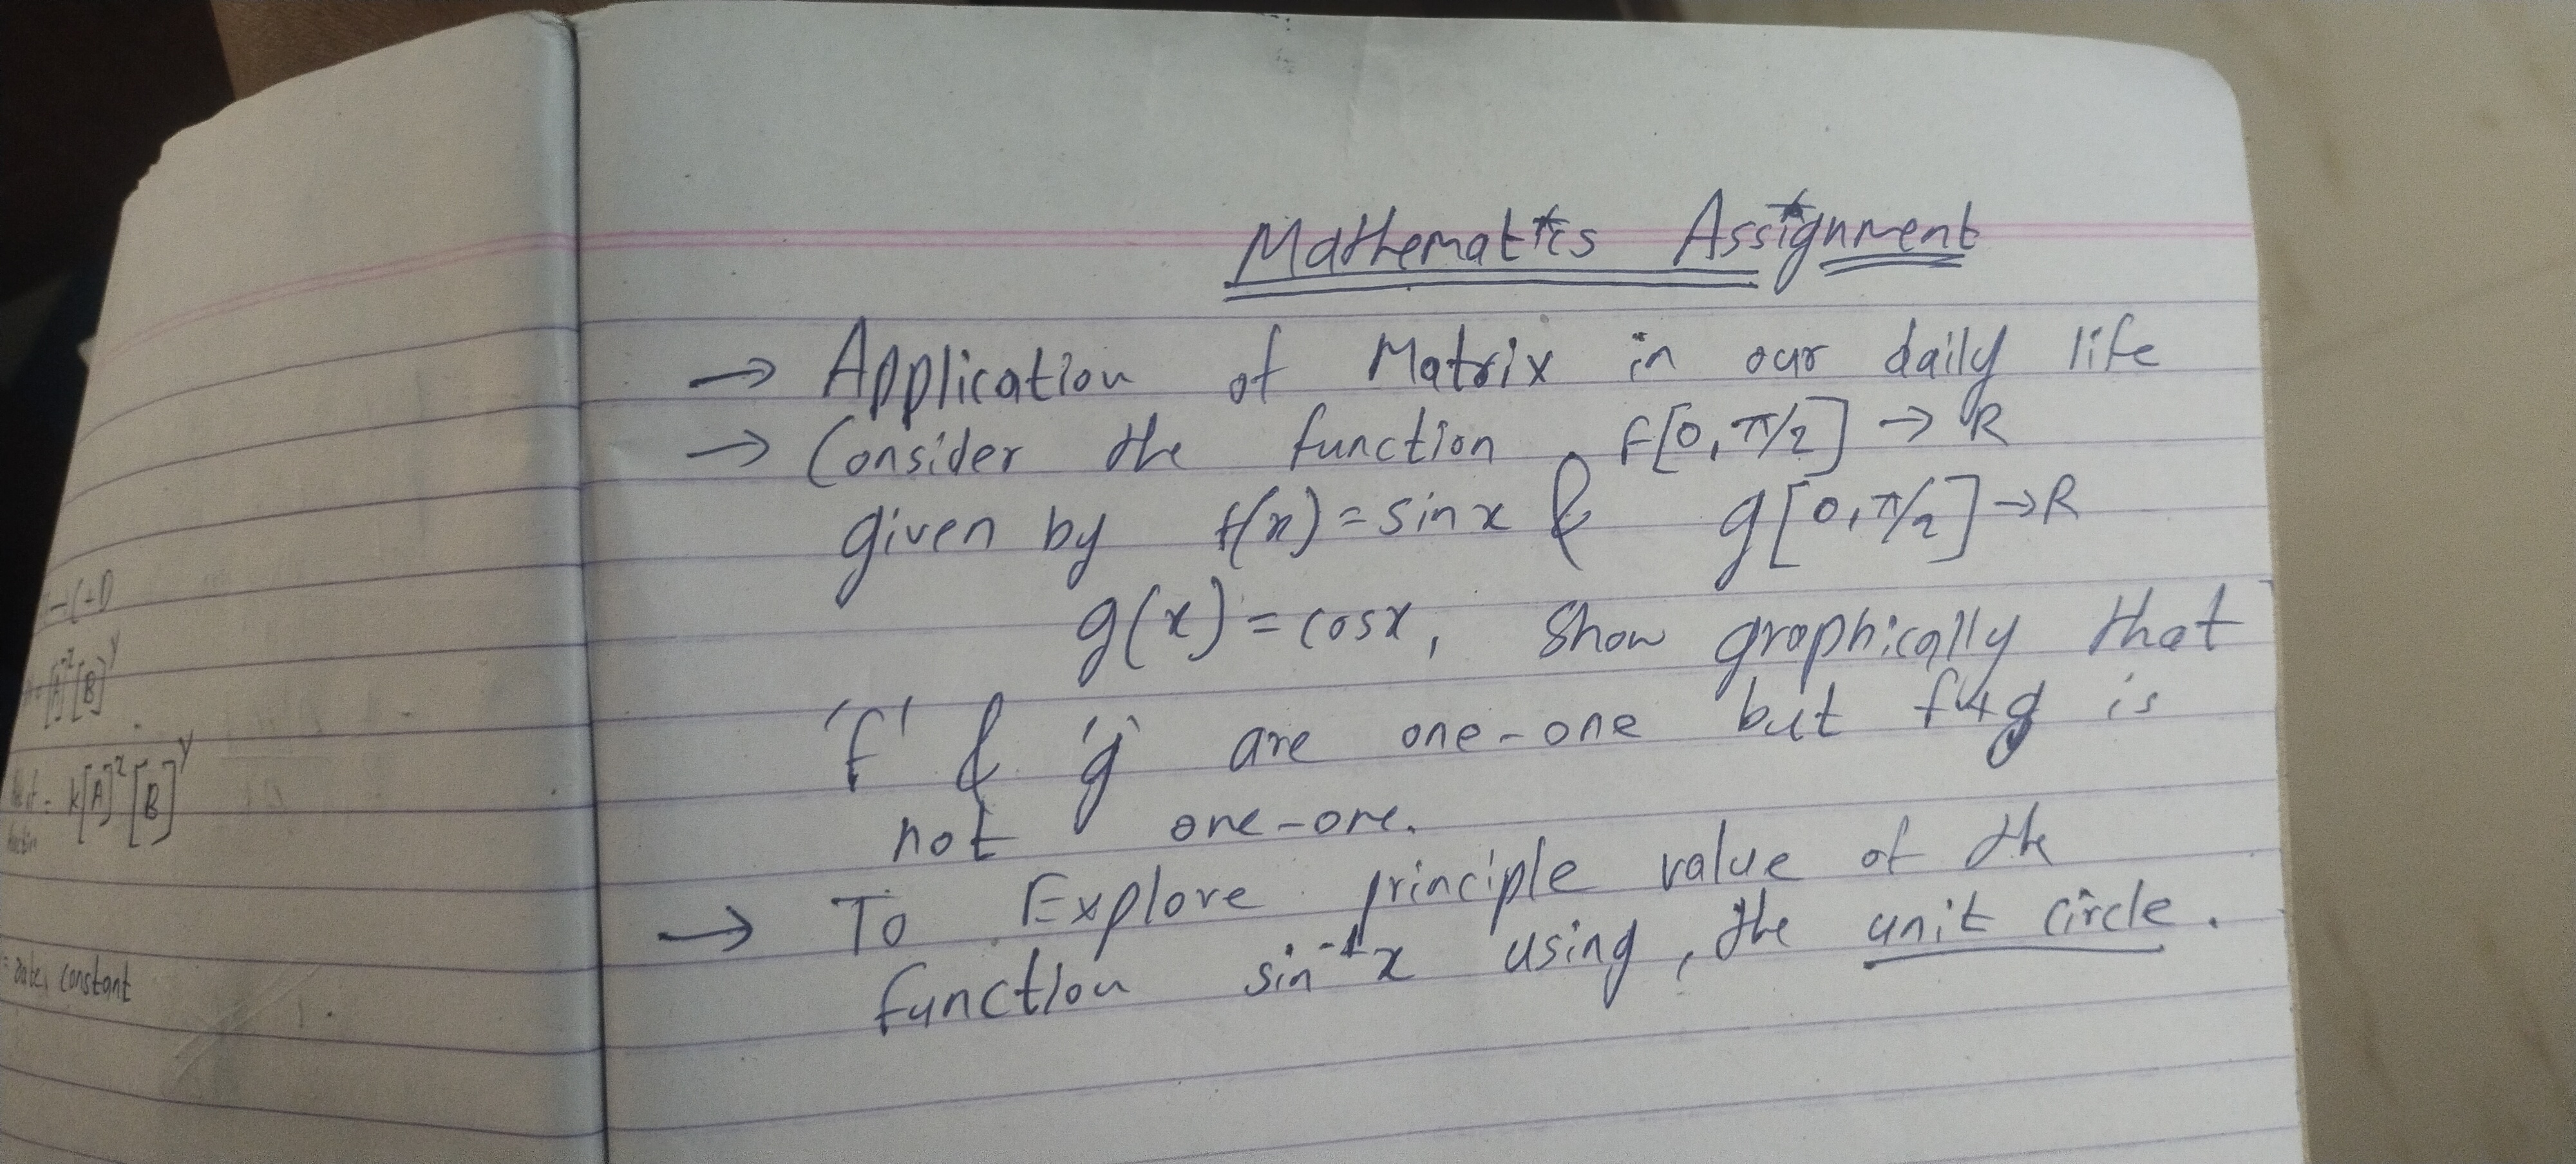 Mathematics Assignment
→ Application of Matrix in our daily life
→ Consider the function f[0, π/2] → R
given by f(x) = sinx & g[0, π/2] → R
g(x) = cosx, Show graphically that
'f' & 'g' are one-one but f+g is
not one-one.
→ To Explore principle value of the
function sin⁻¹x using, the unit circle.
[B]ʸ
k[A]ˣ [B]ʸ
constant